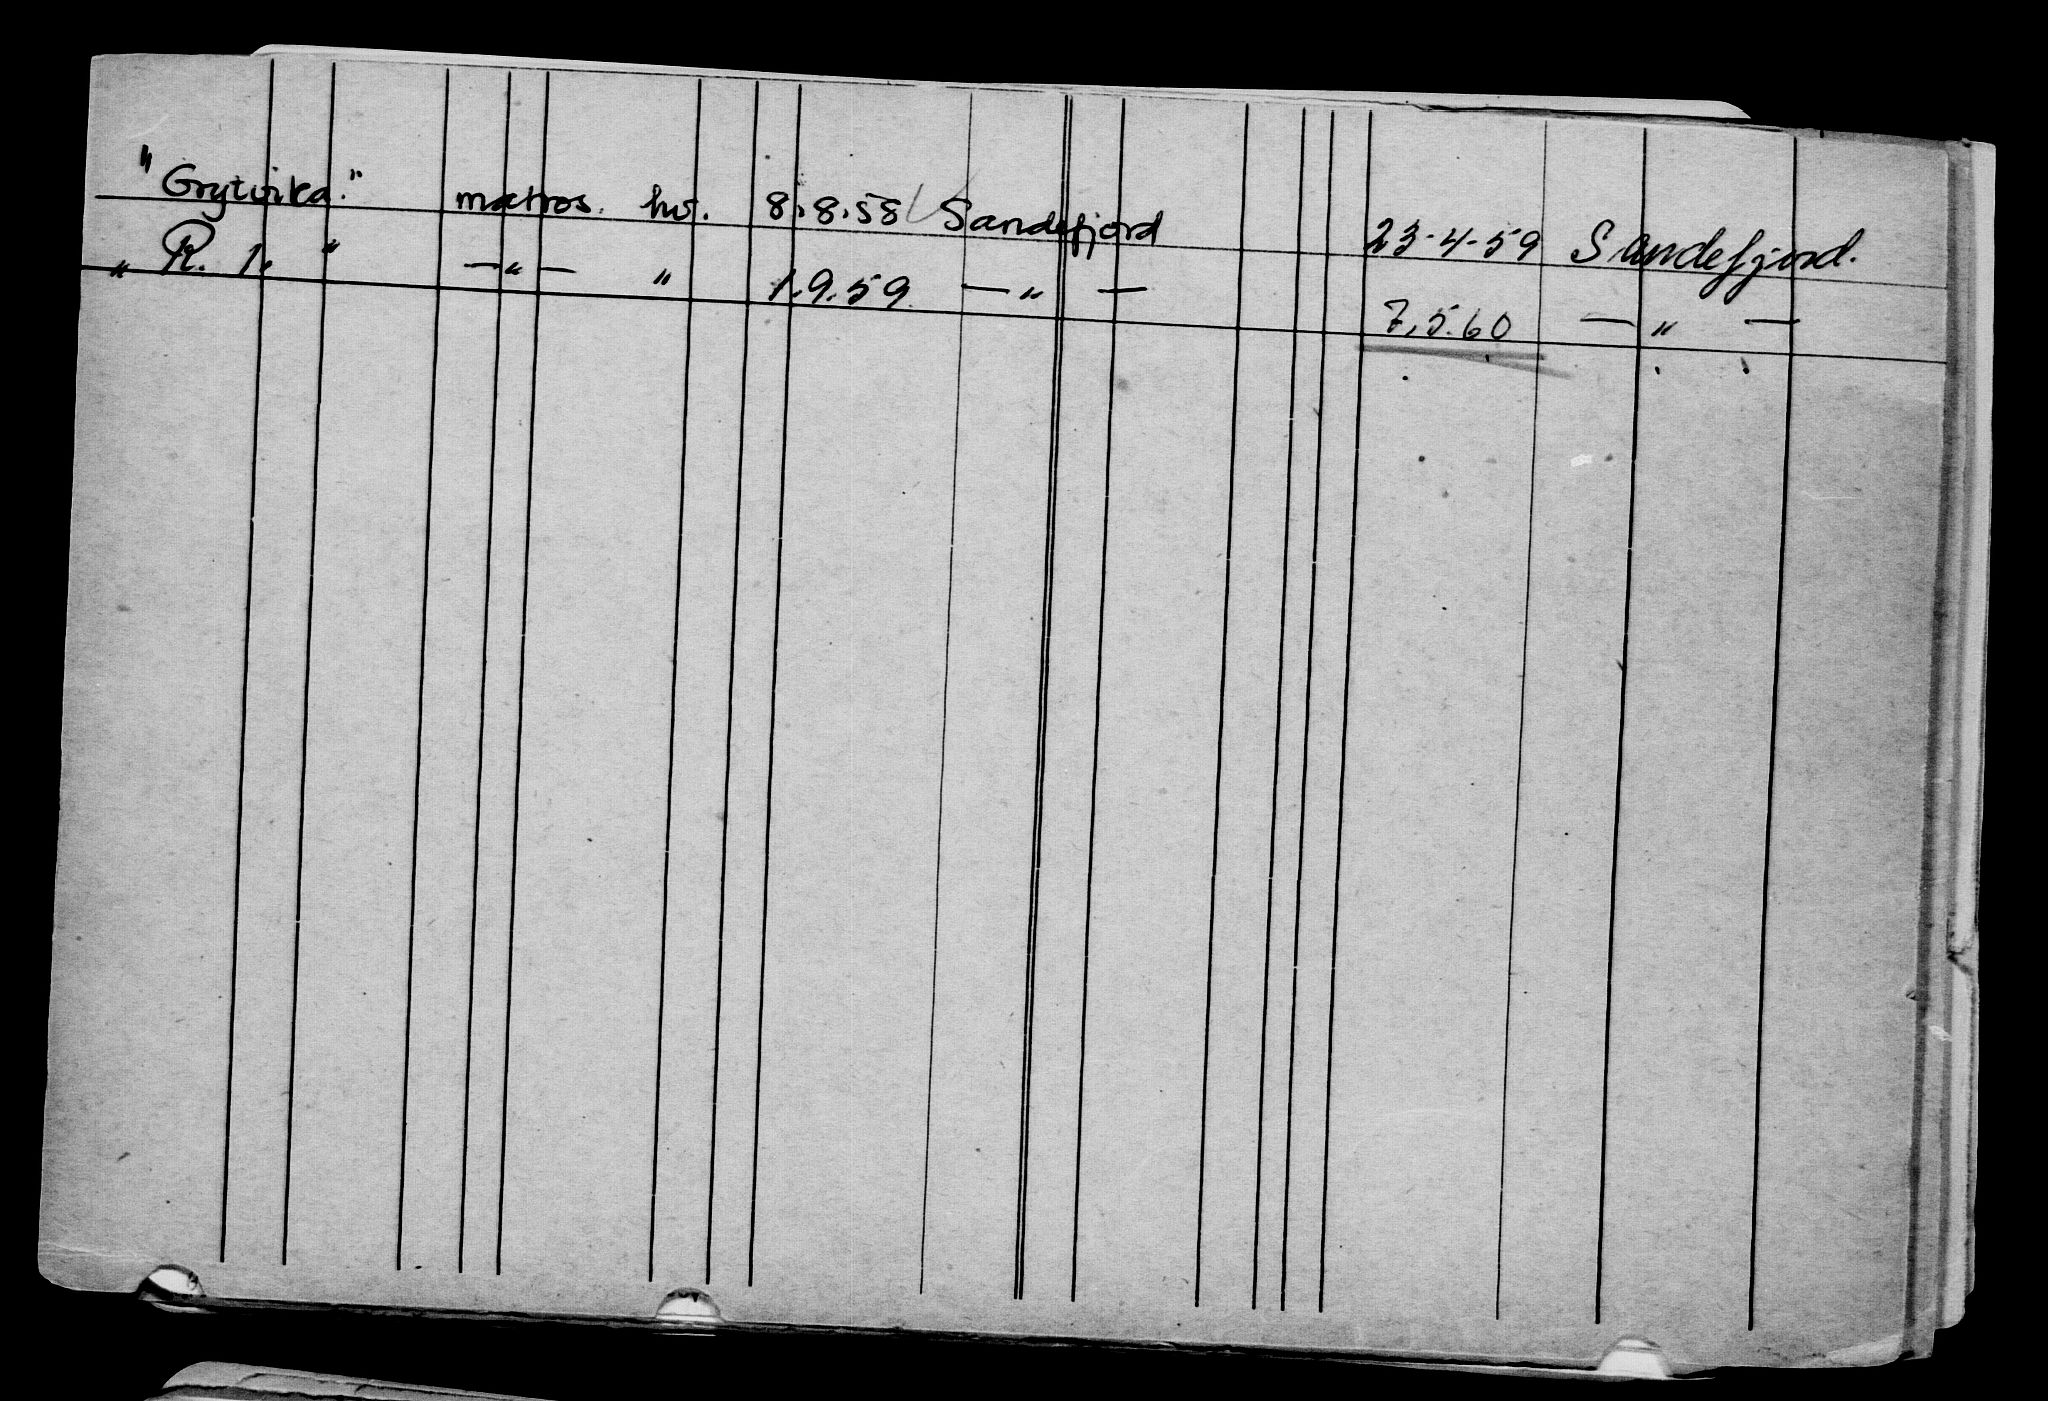 "Grytvika." matros. hv. 8.8.58 Sandefjord 23-4-59 Sandefjord.
" R. 1. " —"— " 1.9.59 —"— 7.5.60 —"—